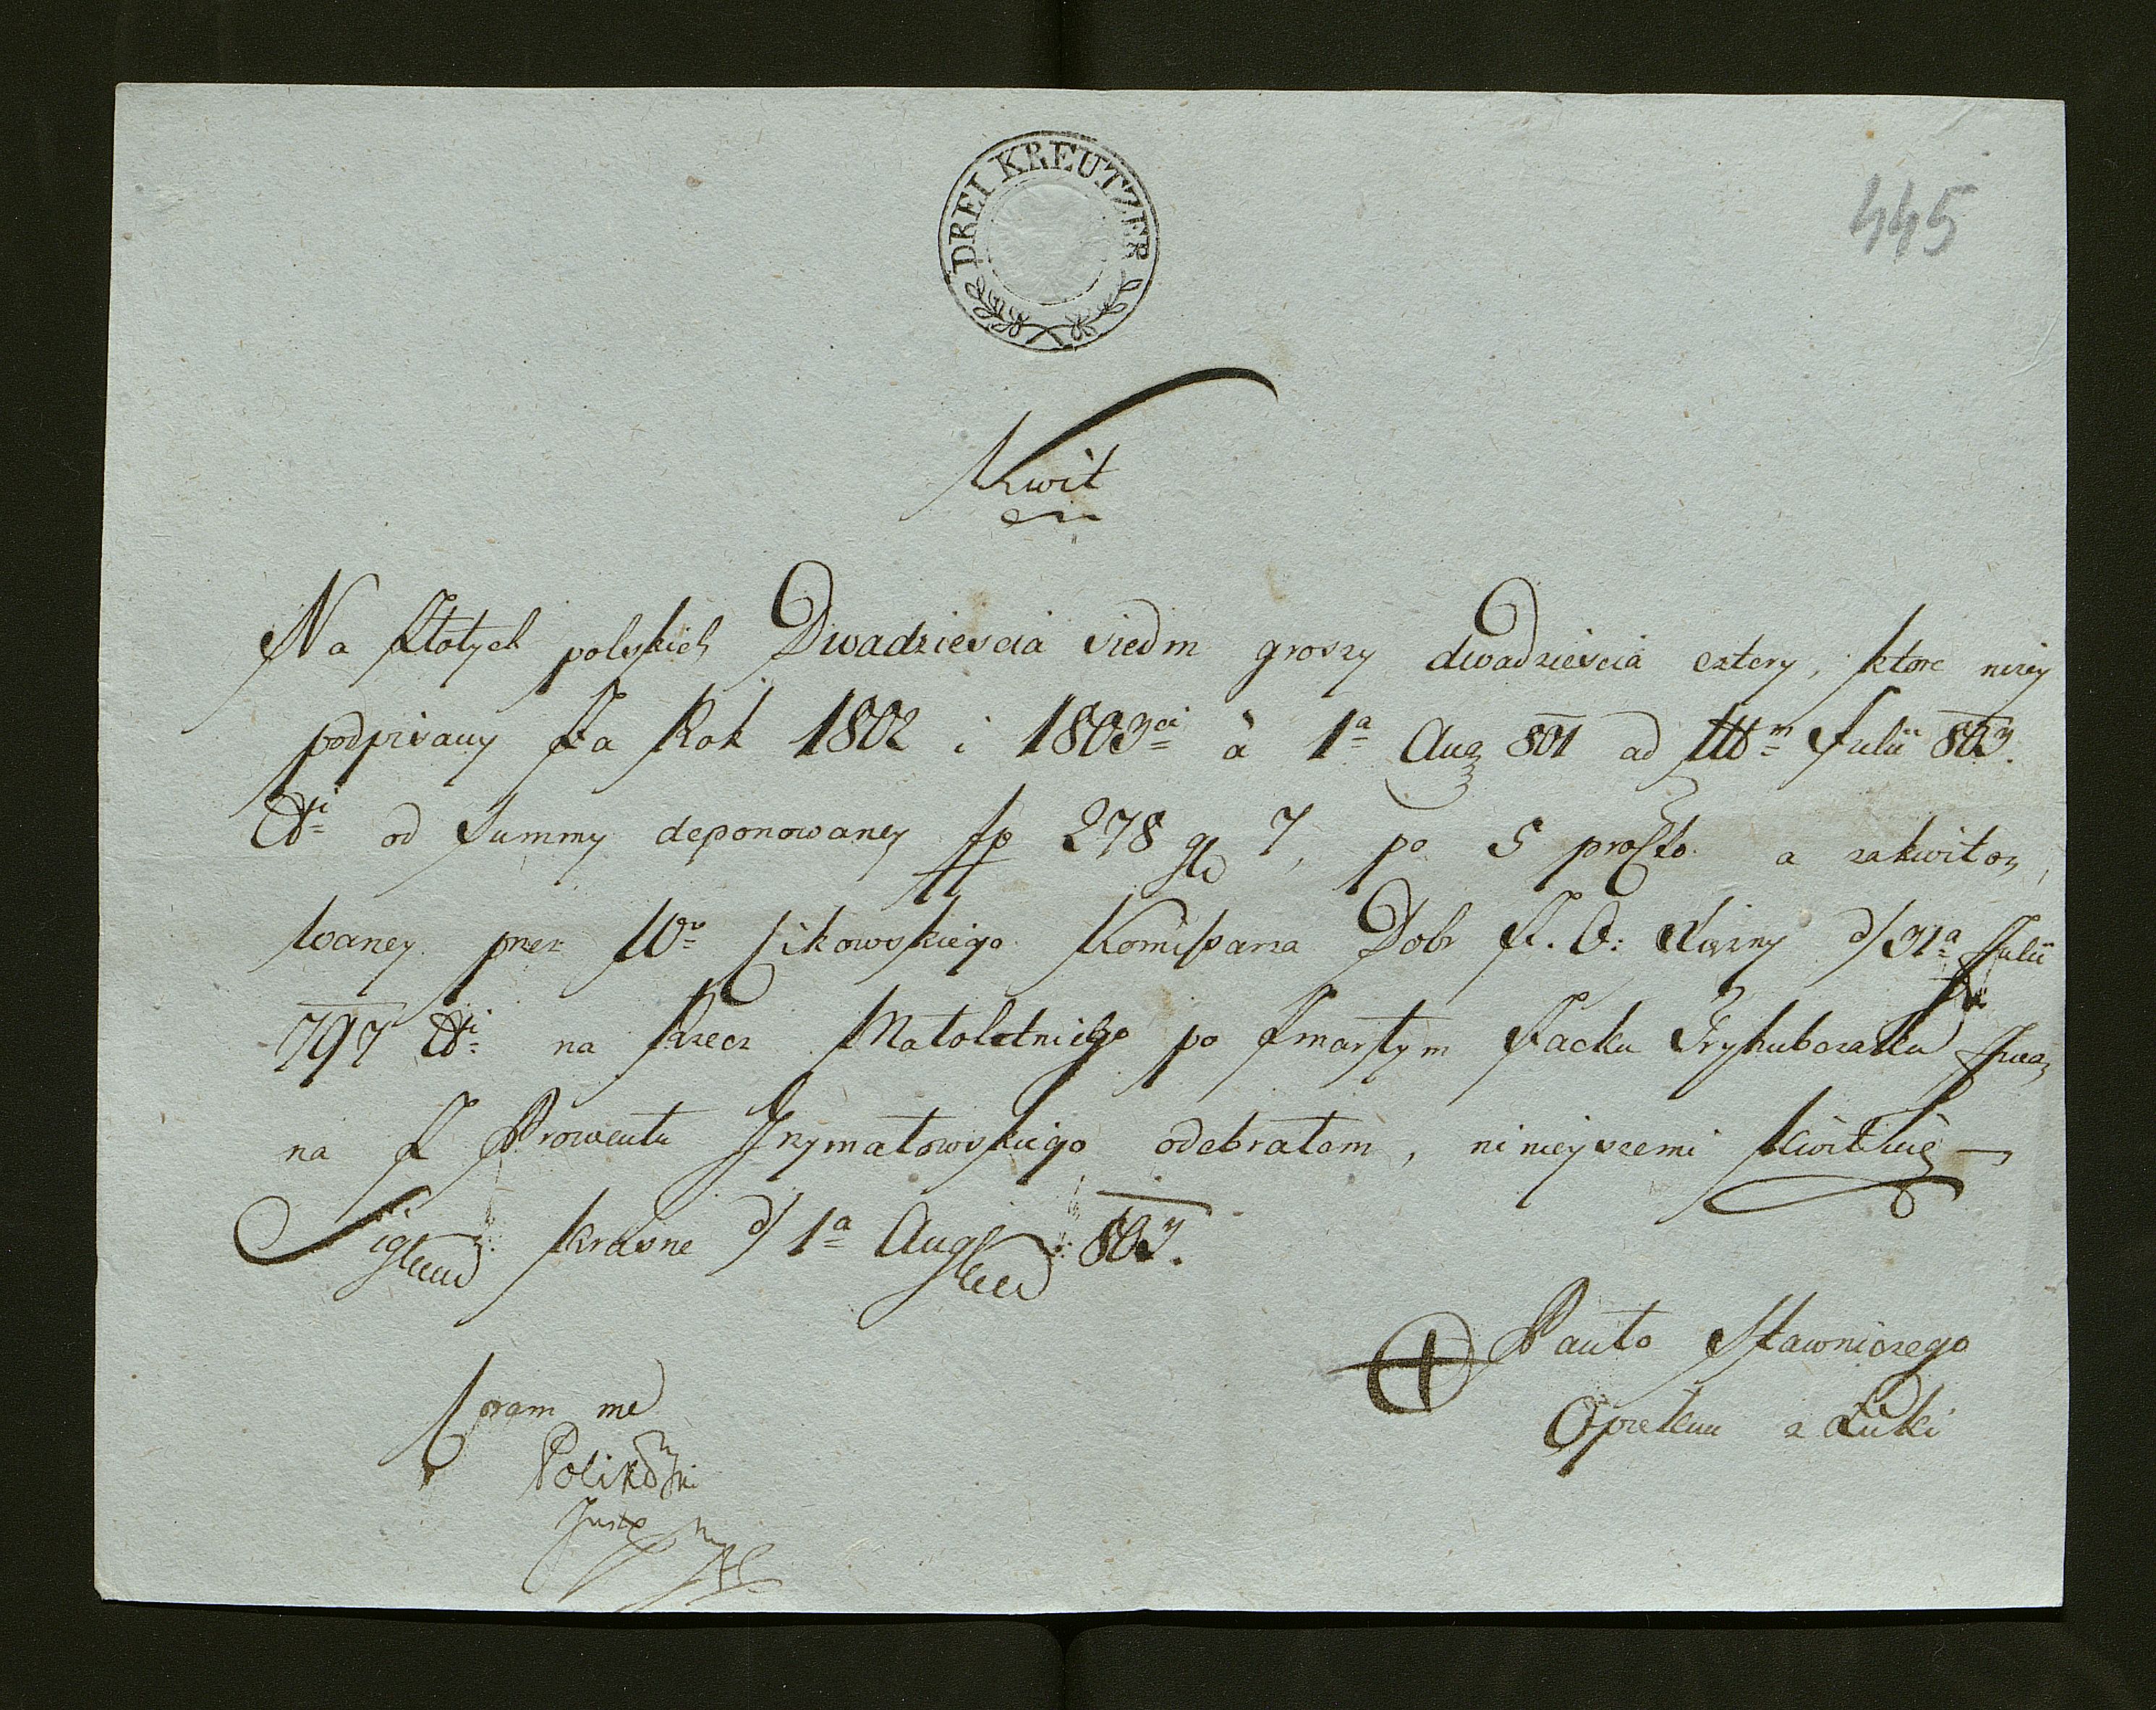 DREI KREUTZER
445
Kwit
Na Złotych polskich Dwadziescia siedm groszy dwadziescia cztery, ktore niżey
podpisany Za Rok 1802 i 1803ci à 1a Aug 801 ad Julii 803.
od Summy deponowaney fp 278 g 7, po 5 procto a zakwito,
waney przez Cikowskiego Komissarza Dobr d/ 31a Julii
797 na Rzecz Małoletniego po Zmarłym Jacku
na Z Prowentu Grzymałowskiego odebrałem, nineyszemi kwituię
Sig Krasne d/ 1a Aug 803.
Pauło Sławniczego
Opiekun z Łuki
Coram me
Polikowski